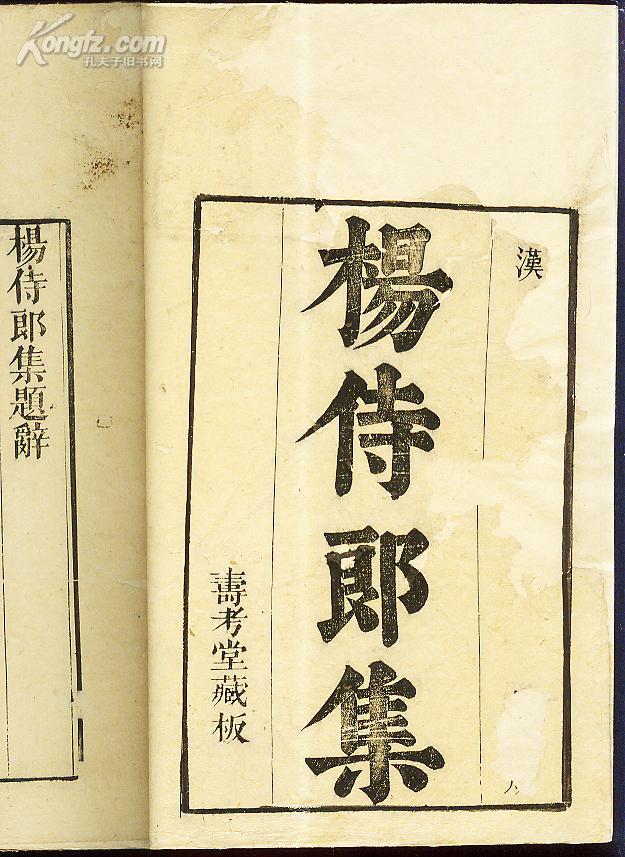 Kongfz.com
孔夫子旧书网
漢
楊侍郎集
壽考堂藏板
楊侍郎集題辭